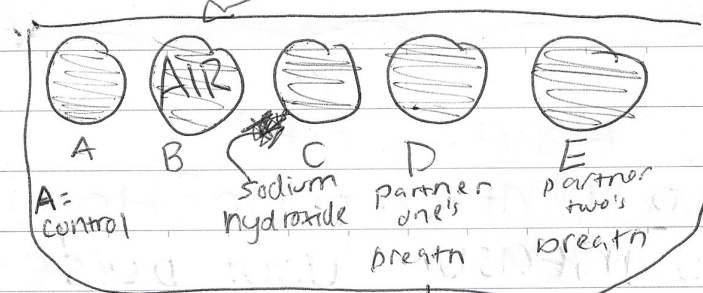 AIR
A B C D E
A=
control
sodium
hydroxide
partner
one's
breath
partner
two's
breath